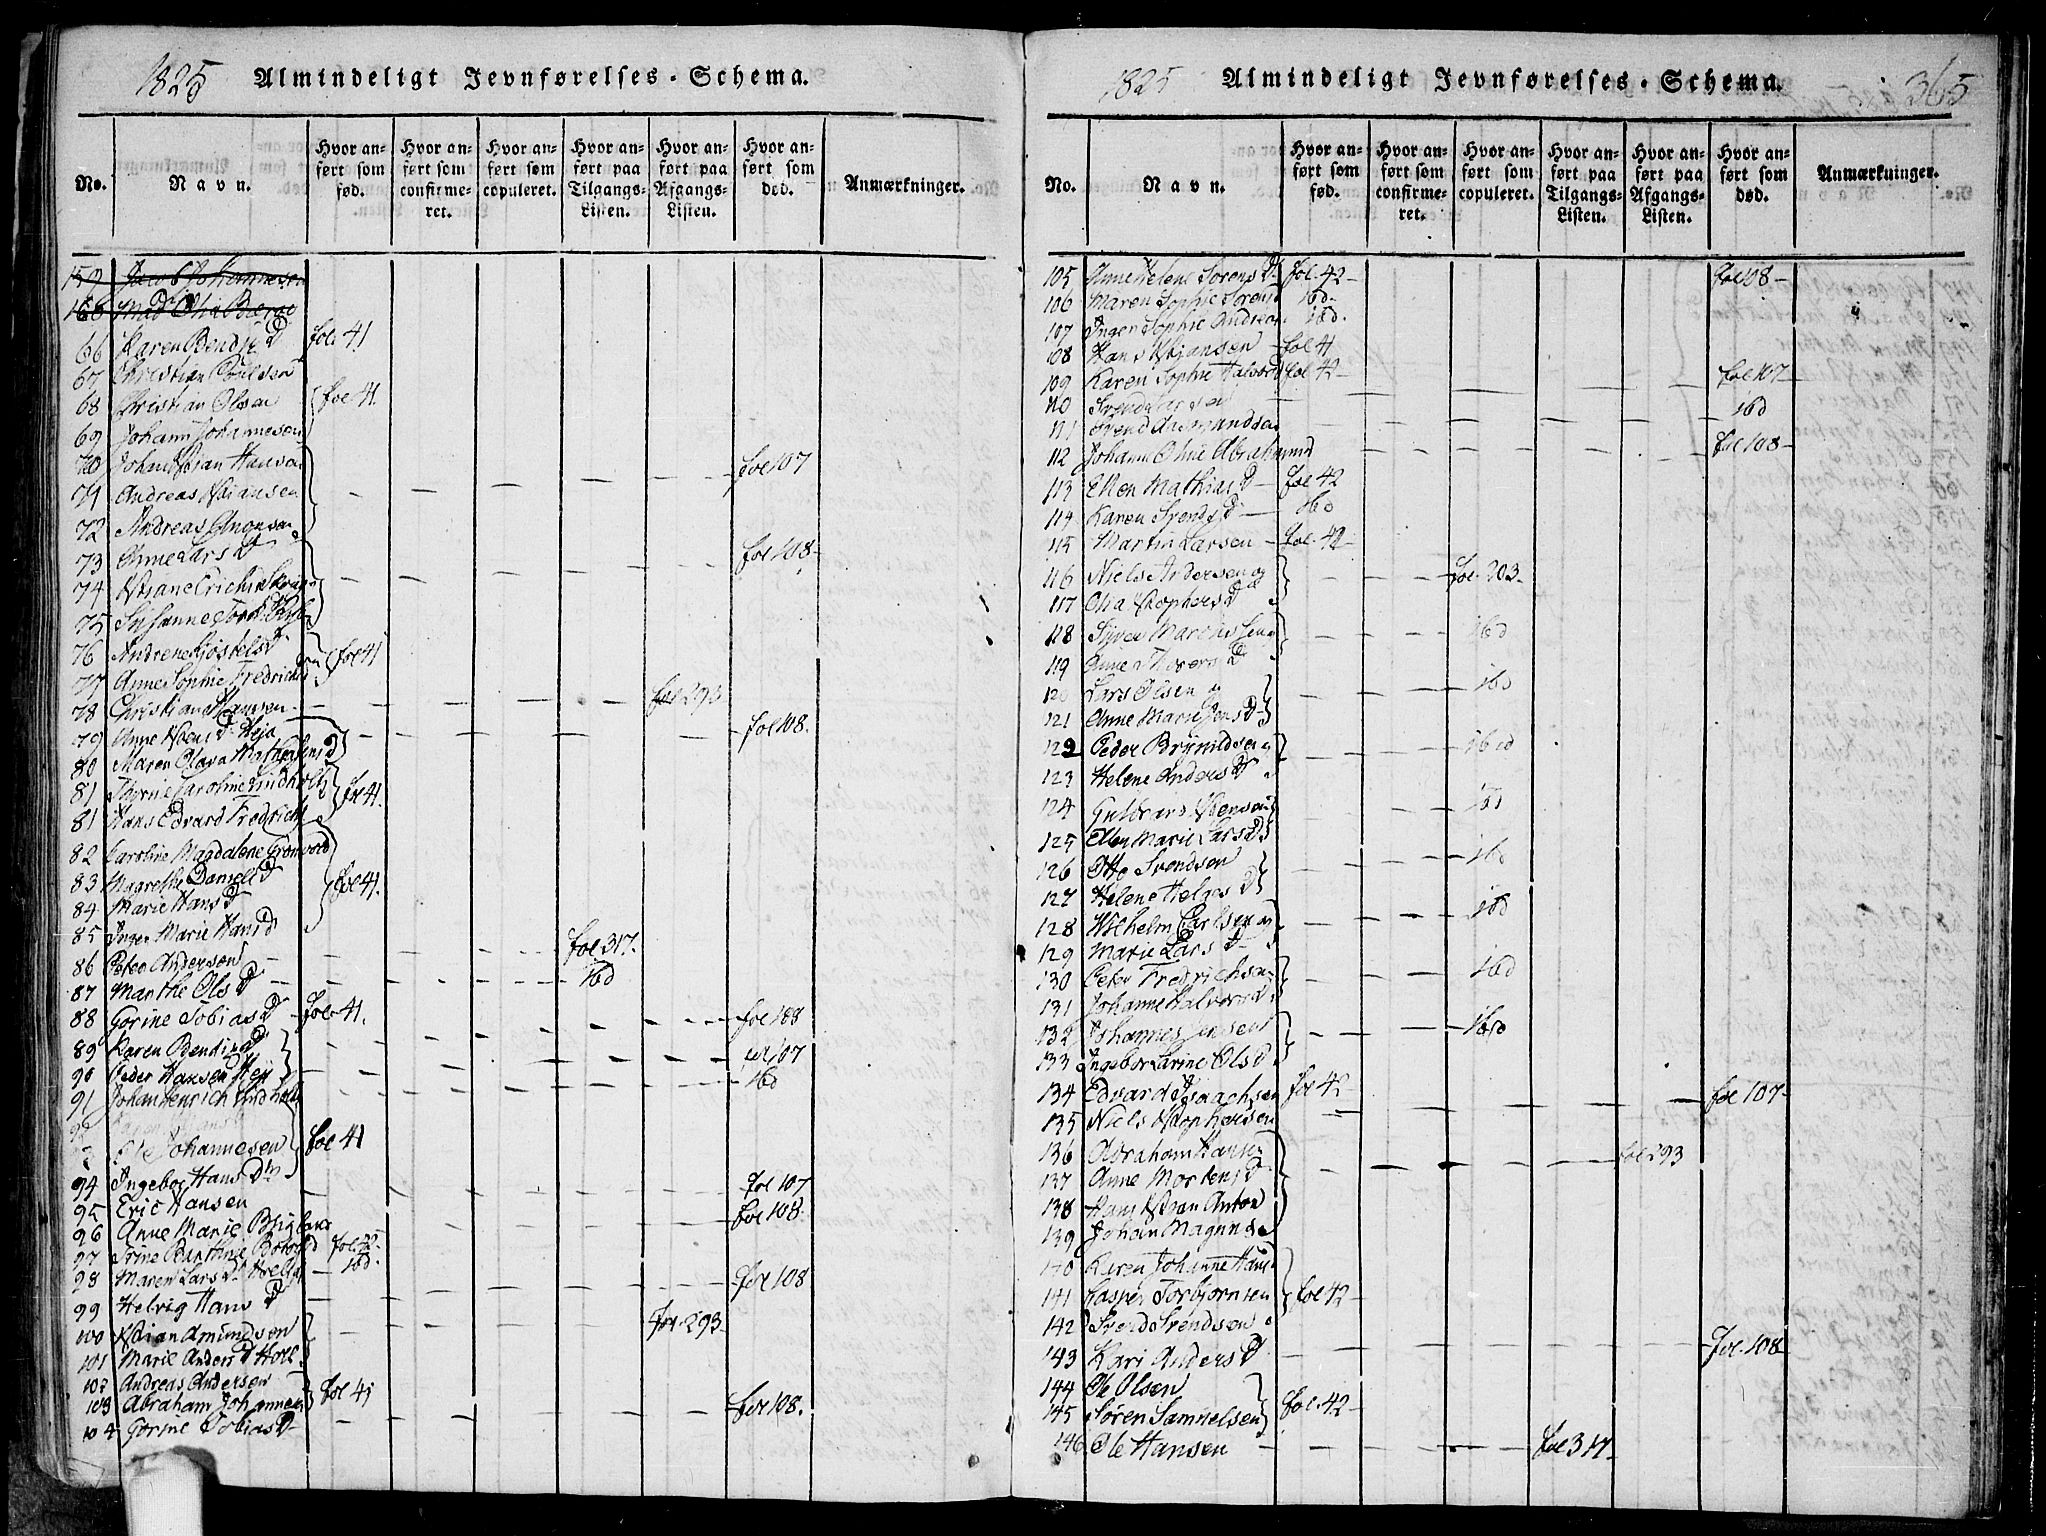 1825 Almindeligt Jevnførelses-Schema.
No. Navn. Hvor anført som fød. Hvor anført som confirmeret. Hvor anført som copuleret. Hvor anført paa Tilgangs-Listen. Hvor anført paa Afgangs-Listen. Hvor anført som død. Anmærkninger.
159 Jacob Johannesen
166
66 Karen Bendix D fol. 41
67 Christian Poulsen
68 Christian Olsen fol 41.
69 Johan Johannesen
70 Johan Xtian Hansen fol 107
71 Andreas Xtiansen
72 Andreas
73 Anne Lars D fol 108
74
75 Susanne
76 Andrene Kjøstels D fol 41
77 Anne Sophie Fredrichs
78 Christian Hansen fol 293
79 Anne fol 108.
80 Maren Olava
81 Caroline Lindholt fol 41.
81 Hans Edvard Fredrichs
82 Caroline Magdalene Grønvold
83 Magrethe Daniels D fol 41.
84 Marie Hans D
85 Inger Marie Hans D
86 Peter Andersen fol 317.
87 Marthe Ols D ibd
88 Gorine Tobias D fol. 41. fol 108
89 Karen Bendix D fol 107
90 Peder Hansen ibd
91 Johan Henrich Lindholt
92
Ole Johannesen fol 41
94 Ingebor Hans D
95 Eric Hansen fol 107
96 Anne Marie fol 108.
97 Trine Berthine fol. 42
98 Maren Lars D ibd.
99 Helvig Hans D fol 108
100 Xtian Amundsen fol. 293
101 Marie Anders D
102 Andreas Andersen
103 Abraham Johannesen fol 41
104 Gorine Tobias D fol 108.
1825 Almindeligt Jevnførelses-Schema. 365
No. Navn. Hvor anført som fød. Hvor anført som confirmeret. Hvor anført som copuleret. Hvor anført paa Tilgangs-Listen. Hvor anført paa Afgangs-Listen. Hvor anført som død. Anmærkninger.
105 Anne Helene Sørens D fol. 42 fol 108
106 Maren Sophie Sørens ibd.
107 Inger Sophie Andreas ibd.
108 Hans Xtjansen fol 41
109 Karen Sophie Halvors fol. 42
110 Svend Larsen fol 107
111 Svend Ammundsen ibd
112 Johanne Olive Abrahams D fol 108
113 Ellen Mathias D fol 42
114 Karen Svends D ibd
115 Martin Larsen fol. 42
116 Niels Andersen og fol. 203.
117 Olia Xtophers D
118 Siver Marcussen ibd
119 Anne Thores D
120 Lars Olsen og ibd
121 Anne Marie Jens D
122 Peder Brynildsen ibd
123 Helene Anders D
124 Gulbrand ibd
125 Ellen Marie Lars D
126 Otto Svendsen ibd
127 Helene Helges D
128 Wilhelm Carlsen og ibd
129 Marie Lars D
130 Peter Fredrichsen ibd
131 Johanne Halvors D
132 Johannes Jensen ibd
133 Ingebor Larine Ols D
134 Edvard Isaachsen fol 42
135 Niels Xtophersen fol 107
136 Abraham Hansen
137 Anne Mortens D fol 293
138 Hans Xtian Anton
139 Johan Magnus
140 Karen Johanne Hans
141 Casper Torbjørnsen fol 42
142 Svend Svendsen
143 Kari Anders D fol. 108
144 Ole Olsen
145 Søren Samuelsen fol. 42
146 Ole Hansen fol 317